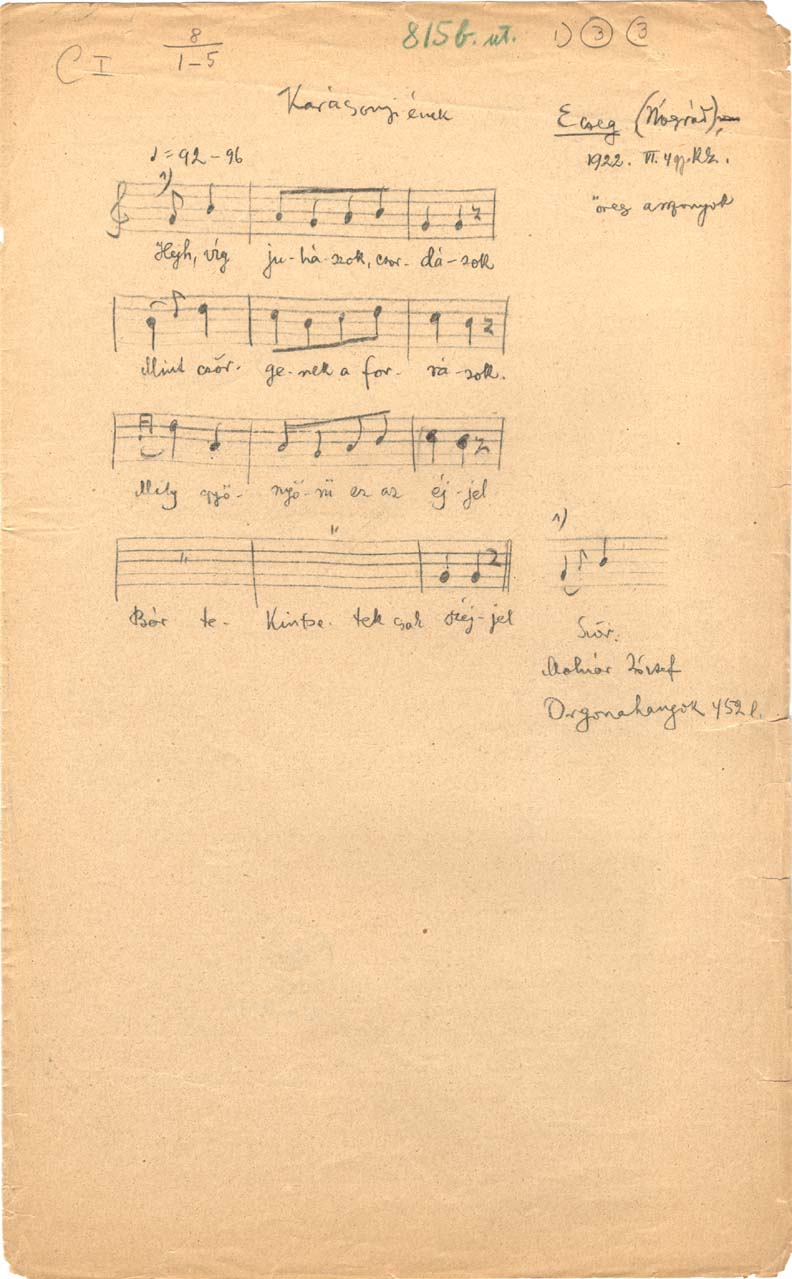 C I
8
1–5
815b. ut.
1) 3 3
Karácsonyi ének
Ecseg (Nógrád)
1922. VI.
öreg asszonyok
♩ = 92 – 96
1)
Hejh, víg ju-há-szok, csor-dá-sok
Mint csör-ge-nek a for-rá-sok.
Mely gyö-nyö-rű ez az éj-jel
Bár te-kintse-tek csak széj-jel
1)
Molnár József
Orgonahangok 452 l.